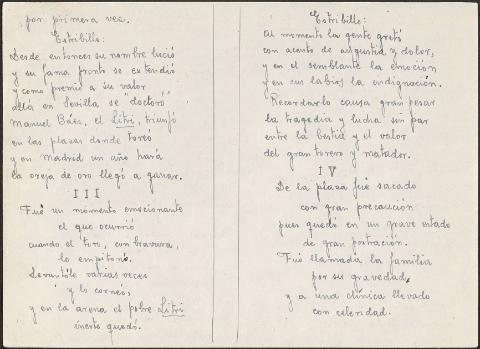 por primera vez.
Estribillo:
Desde entonces su nombre lució
y su fama pronto se extendió
y como premio a su valor
allá en Sevilla se "doctoró"
Manuel Báes, el Litri, triunfó
en las plazas donde toreó
y en Madrid un año hará
la oreja de oro llegó a ganar.
III
Fué un momento emocionante
el que ocurrió
cuando el toro, con bravura,
lo empitonó.
Levantóle varias veces
y lo corneó,
y en la arena el pobre Litri
inerte quedó.
Estribillo:
Al momento la gente gritó
con acento de angustia y dolor,
y en el semblante la emoción
y en sus labios la indignación.
Recordarlo causa gran pesar
la tragedia y lucha sin par
entre la bestia y el valor
del gran torero y matador.
IV
De la plaza fué sacado
con gran precaución
pues quedó en un grave estado
de gran postración.
Fué llamada la familia
por su gravedad,
y a una clínica llevado
con celeridad.